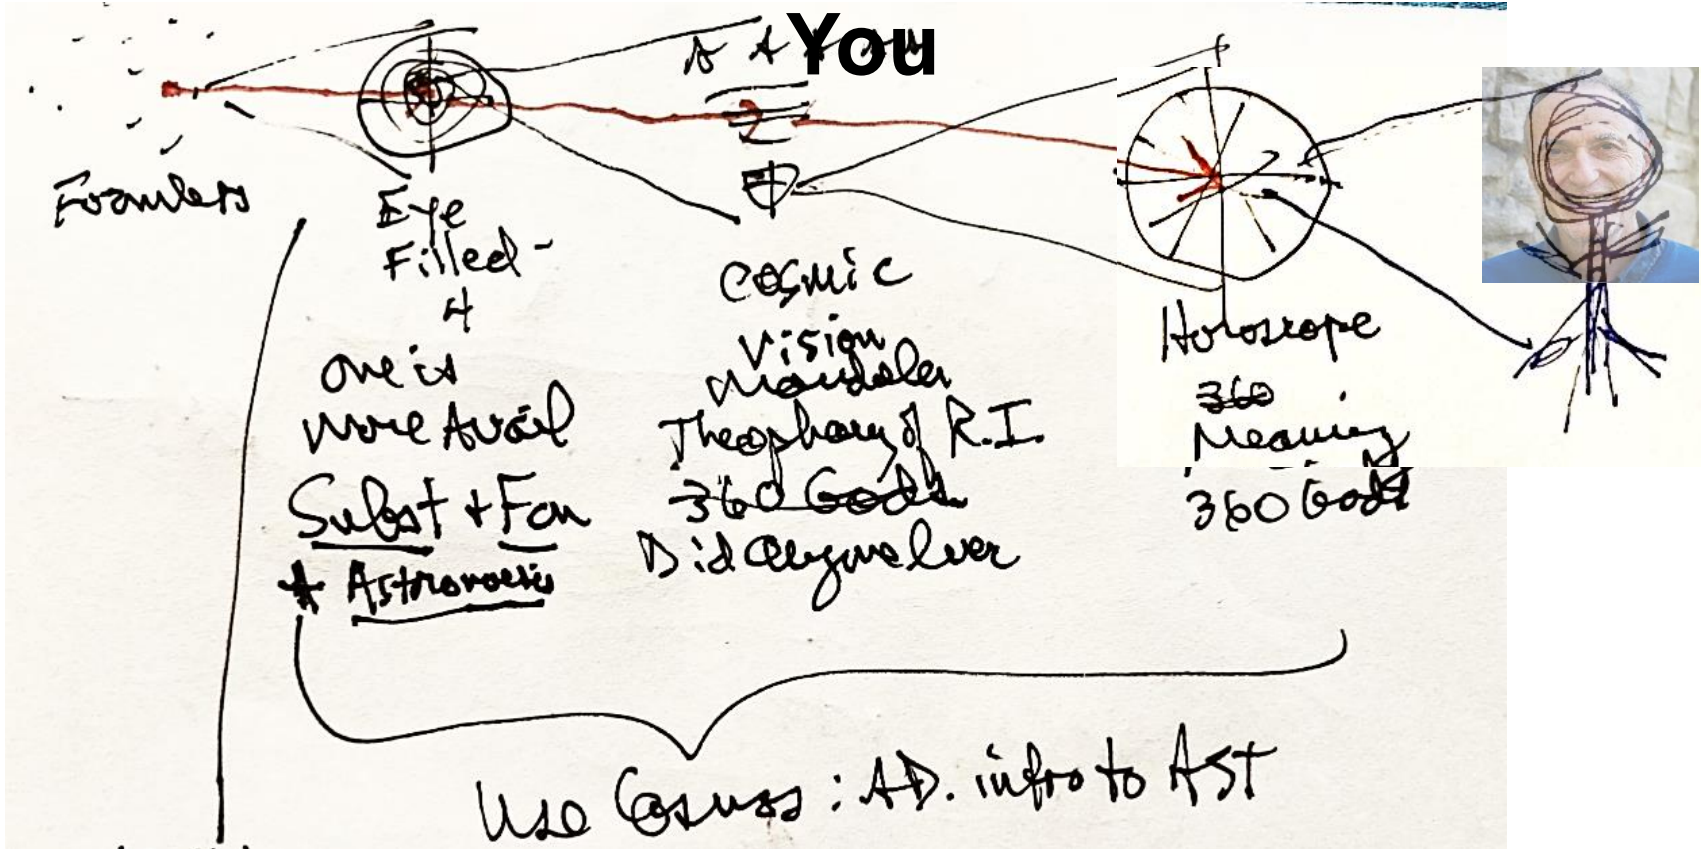 You
Formless
Eye
Filled -
4
one is
more Avail
Subst + Fon
* Astronoetic
Cosmic
Vision
Mandala
Theophany of R.I.
360 Gods
Did Anyone lver
Horoscope
360
Meaning
360 Gods
Use Cosmos : AD. intro to AST